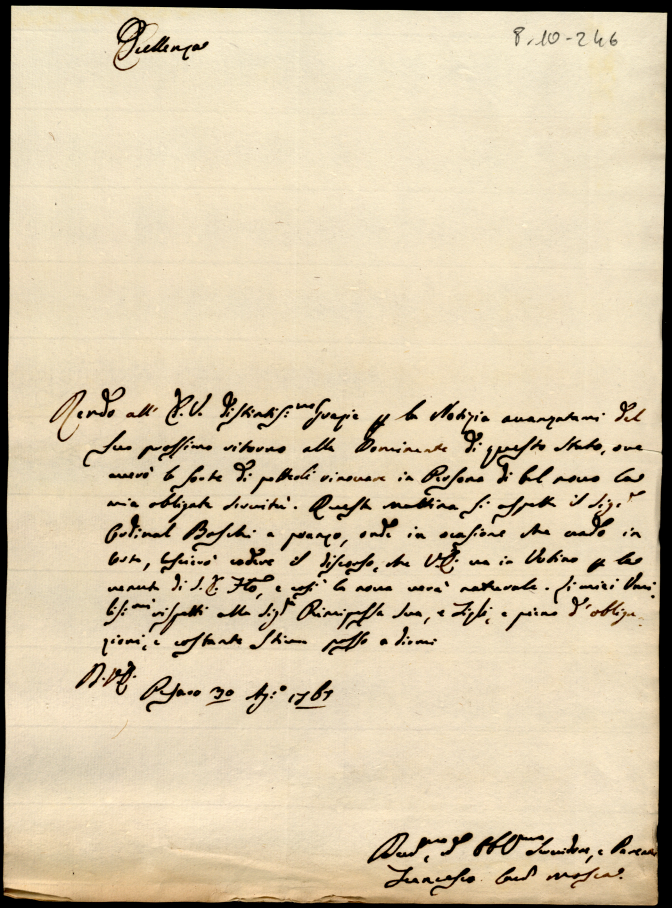 Eccellenza
8.10-246
Rendo all' E. V. distintissi.me Grazie p la Notizia avanzatami del
suo prossimo ritorno alla Dominante di questo Stato, ove
averò la sorte di poterli rinovare in Persona di bel nuovo la
mia obligata servitù. Questa mattina si aspetta il Sig.r
Cardinal Boschi a pranzo, onde in ocasione che vado in
, lascierò cadere il discorso, che V.E. va in Urbino p la
venuta di S. E. , e così la nova verà naturale. Li miei Umi
lissi.mi rispetti alla Sig.ra Principessa Sua, e Figli, e pieno d'obliga
zioni, e costante stima passo a dirmi
D. V.E.
Pesaro 30 Ag.o 1767
Obb.mo Servidore, e Parente
Francesco Mosca